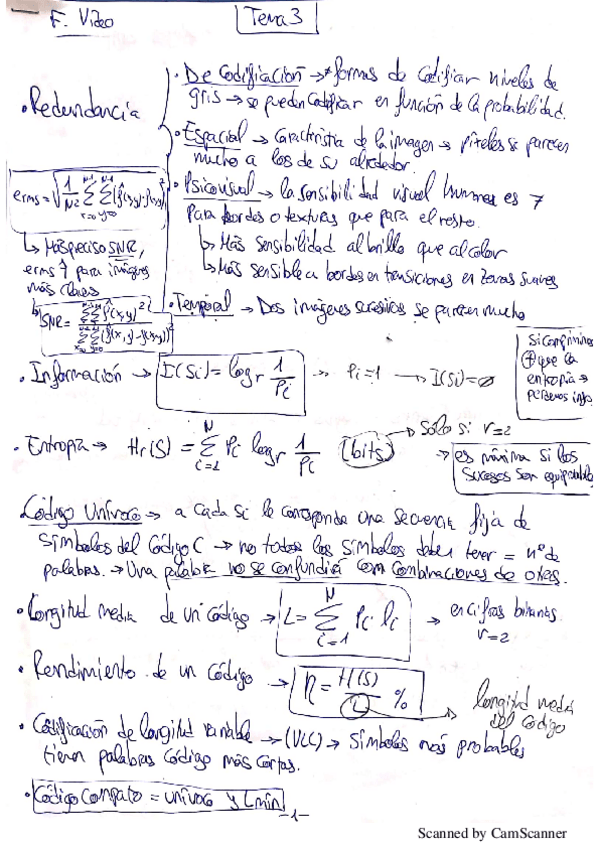 F. Video
Tema 3
• Redundancia
• De Codificación → * formas de codificar niveles de
gris → se pueden codificar en función de la probabilidad.
• Espacial → Característia de la imagen → píxeles se parecen
mucho a los de su alrededor.
• Psicovisual → la sensibilidad visual humana es ↑
para bordes o texturas que para el resto.
↳ Más sensibilidad al brillo que al color
↳ Más sensible a bordes en transiciones en zonas suaves
• Temporal → Dos imágenes sucesivas se parecen mucho
erms = √(1/N² ΣΣ(f̂(x,y)-f(x,y))²)
↳ Más preciso SNR,
erms ↑ para imágenes
más claras
SNR = ΣΣ f̂(x,y)² / ΣΣ(f̂(x,y)-f(x,y))²
• Información → I(Si) = logr 1/Pi → Pi=1 → I(Si)=∅
Si comprimimos
⊕ que la
entropía →
perdemos info.
• Entropía → Hr(S) = Σ Pi logr 1/Pi (bits) → Sólo si r=2
→ es máxima si los
sucesos son equiprobables
Código Unívoco → a cada Si le corresponde una secuencia fija de
símbolos del código C → no todos los símbolos deben tener = nº de
palabras. → Una palabra no se confundirá con combinaciones de otras.
• Longitud media de un código → L = Σ Pi · li → en cifras binarias
r=2
• Rendimiento de un código → η = H(S)/L % → longitud media
del código
• Codificación de longitud variable → (VLC) → Símbolos más probables
tienen palabras código más cortas.
• Código compacto = unívoco y Lmin
-1-
Scanned by CamScanner